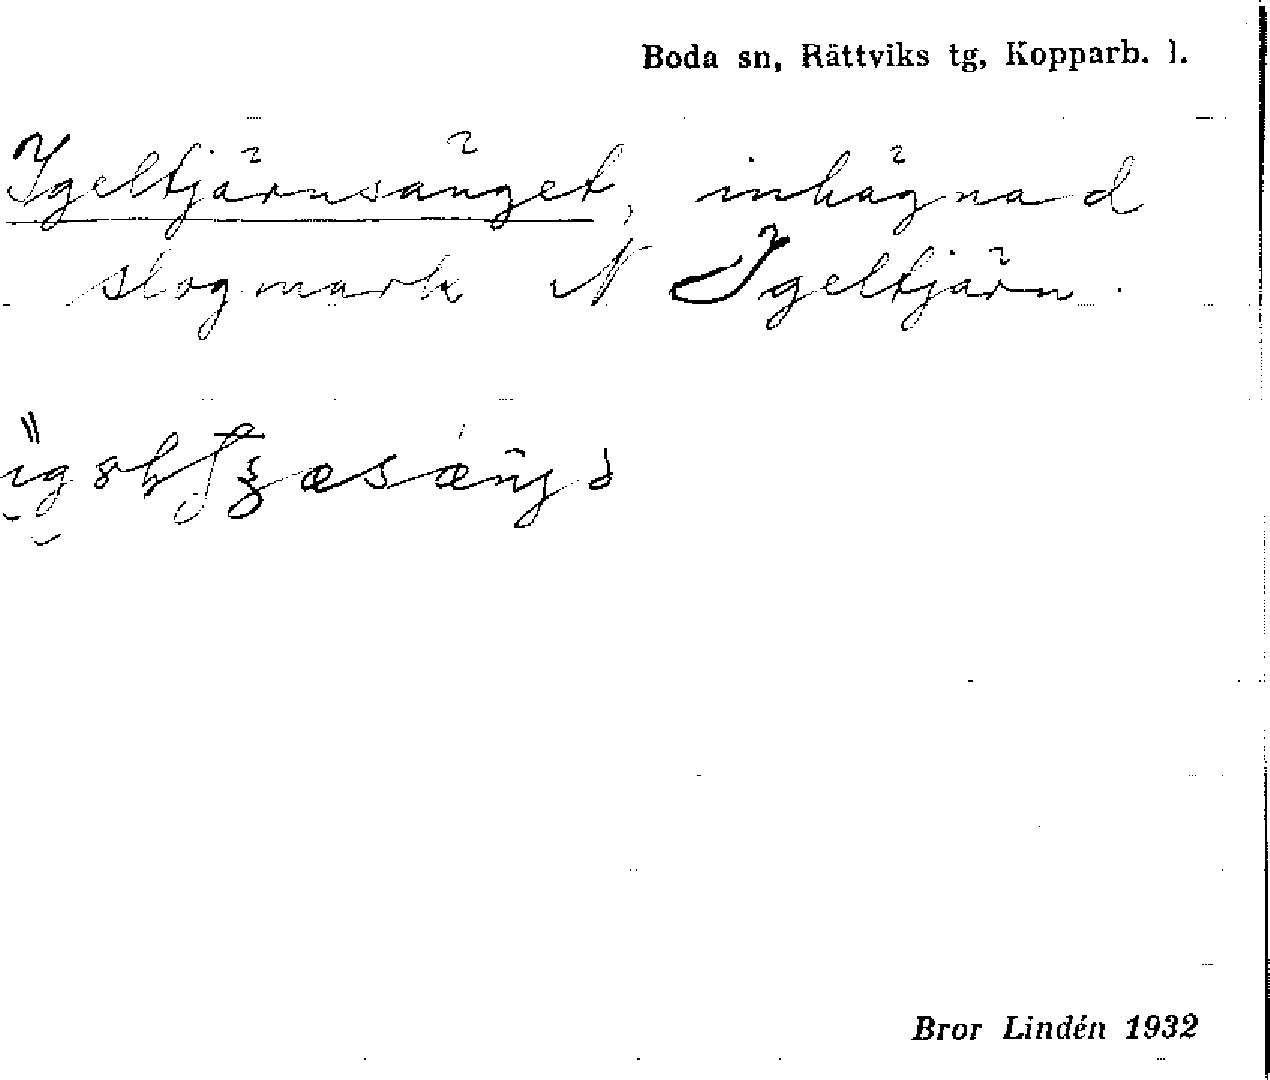 Boda sn, Rättviks tg, Kopparb. l.
Igeltjärnsänget, inhägnad
slogmark N Igeltjärn.
Bror Lindén 1932